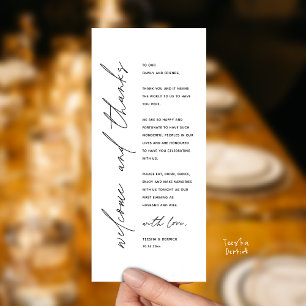 welcome and thanks
TO OUR
FAMILY AND FRIENDS,
THANK YOU AND IT MEANS
THE WORLD TO US TO HAVE
YOU HERE.
WE ARE SO HAPPY AND
FORTUNATE TO HAVE SUCH
WONDERFUL PEOPLES IN OUR
LIVES AND ARE HONOURED
TO HAVE YOU CELEBRATING
WITH US.
PLEASE EAT, DRINK, DANCE,
ENJOY AND MAKE MEMORIES
WITH US TONIGHT AS OUR
FIRST EVENING AS
HUSBAND AND WIFE.
with love,
TEESHA & DERRICK
Teesha
Derrick